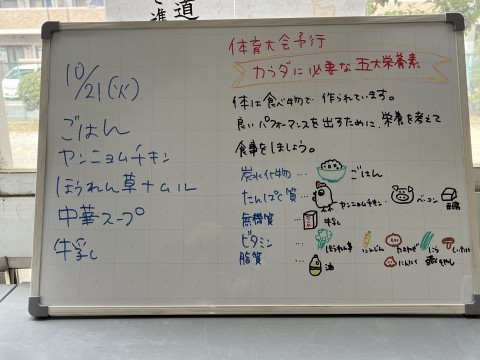 道
10/21(火)
ごはん
ヤンニョムチキン
ほうれん草ナムル
中華スープ
牛乳
体育大会予行
カラダに必要な五大栄養素
体は食べ物で作られています。
良いパフォーマンスを出すために、栄養を考えて
食事をしましょう。
炭水化物… ごはん
たんぱく質… ヤンニョムチキン・ ベーコン 豆腐
無機質… 牛乳
ビタミン… ほうれん草 にんじん たまねぎ にら しいたけ
にんにく もやし
脂質… 油